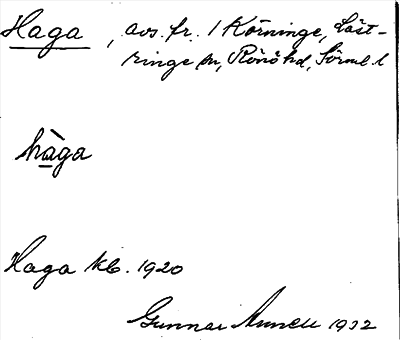 Haga, avs. fr. 1 Körninge, Läst-
ringe sn, Rönö hd, Sörml. l
hàga
Haga kb. 1920
Gunnar 1932